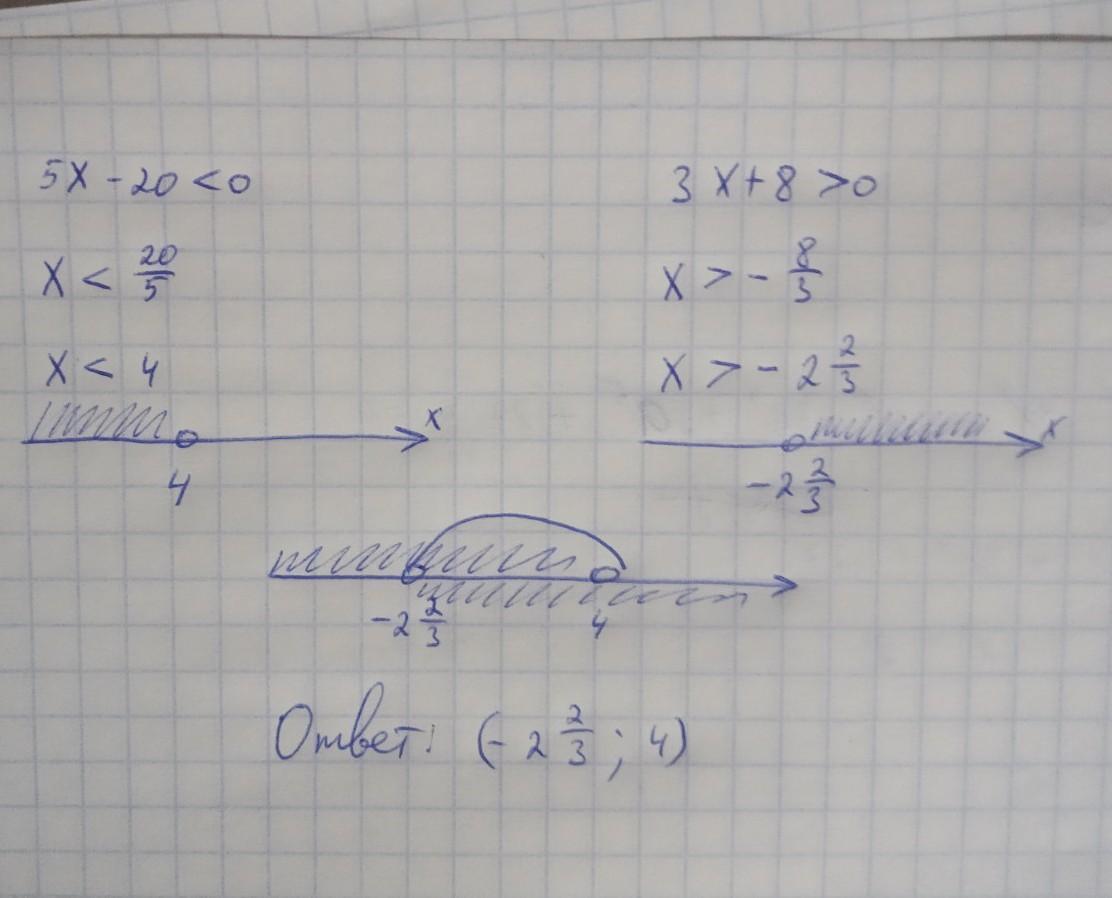 5x - 20 < 0
x < 20/5
x < 4
x
4
3x + 8 > 0
x > - 8/3
x > - 2 2/3
x
-2 2/3
-2 2/3 4
Ответ: (- 2 2/3 ; 4)